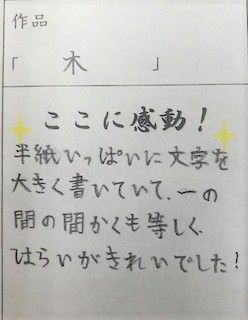 作品
「 木 」
ここに感動！
半紙いっぱいに文字を
大きく書いていて、一の
間の間かくも等しく、
はらいがきれいでした！